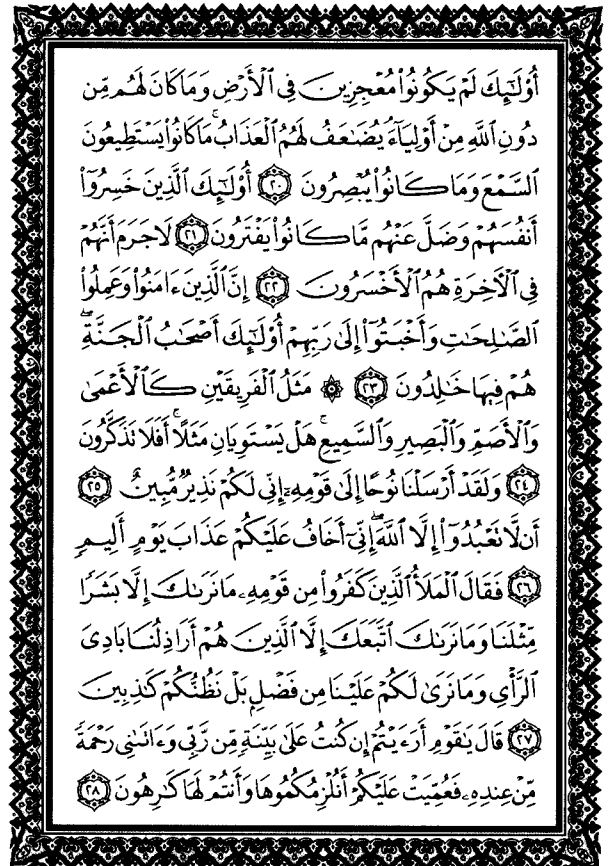 أُوْلَٰٓئِكَ لَمْ يَكُونُوا۟ مُعْجِزِينَ فِي ٱلْأَرْضِ وَمَا كَانَ لَهُم مِّن
دُونِ ٱللَّهِ مِنْ أَوْلِيَآءَ يُضَٰعَفُ لَهُمُ ٱلْعَذَابُ ۚ مَا كَانُوا۟ يَسْتَطِيعُونَ
ٱلسَّمْعَ وَمَا كَانُوا۟ يُبْصِرُونَ ٢٠ أُوْلَٰٓئِكَ ٱلَّذِينَ خَسِرُوٓا۟
أَنفُسَهُمْ وَضَلَّ عَنْهُم مَّا كَانُوا۟ يَفْتَرُونَ ٢١ لَا جَرَمَ أَنَّهُمْ
فِي ٱلْأَخِرَةِ هُمُ ٱلْأَخْسَرُونَ ٢٢ إِنَّ ٱلَّذِينَ ءَامَنُوا۟ وَعَمِلُوا۟
ٱلصَّٰلِحَٰتِ وَأَخْبَتُوٓا۟ إِلَىٰ رَبِّهِمْ أُوْلَٰٓئِكَ أَصْحَٰبُ ٱلْجَنَّةِ ۖ
هُمْ فِيهَا خَٰلِدُونَ ٢٣ ۞ مَثَلُ ٱلْفَرِيقَيْنِ كَٱلْأَعْمَىٰ
وَٱلْأَصَمِّ وَٱلْبَصِيرِ وَٱلسَّمِيعِ ۚ هَلْ يَسْتَوِيَانِ مَثَلًا ۚ أَفَلَا تَذَكَّرُونَ
٢٤ وَلَقَدْ أَرْسَلْنَا نُوحًا إِلَىٰ قَوْمِهِۦٓ إِنِّي لَكُمْ نَذِيرٌ مُّبِينٌ ٢٥
أَن لَّا تَعْبُدُوٓا۟ إِلَّا ٱللَّهَ ۖ إِنِّيٓ أَخَافُ عَلَيْكُمْ عَذَابَ يَوْمٍ أَلِيمٍ
٢٦ فَقَالَ ٱلْمَلَأُ ٱلَّذِينَ كَفَرُوا۟ مِن قَوْمِهِۦ مَا نَرَىٰكَ إِلَّا بَشَرًا
مِّثْلَنَا وَمَا نَرَىٰكَ ٱتَّبَعَكَ إِلَّا ٱلَّذِينَ هُمْ أَرَاذِلُنَا بَادِيَ
ٱلرَّأْيِ وَمَا نَرَىٰ لَكُمْ عَلَيْنَا مِن فَضْلٍۭ بَلْ نَظُنُّكُمْ كَٰذِبِينَ
٢٧ قَالَ يَٰقَوْمِ أَرَءَيْتُمْ إِن كُنتُ عَلَىٰ بَيِّنَةٍ مِّن رَّبِّي وَءَاتَىٰنِي رَحْمَةً
مِّنْ عِندِهِۦ فَعُمِّيَتْ عَلَيْكُمْ أَنُلْزِمُكُمُوهَا وَأَنتُمْ لَهَا كَٰرِهُونَ ٢٨